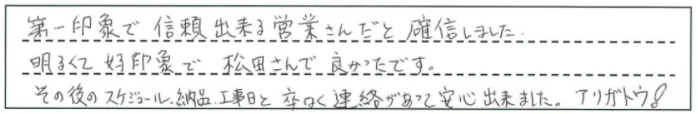 第一印象で 信頼出来る営業さんだと 確信しました.
明るくて 好印象で 松田さんで 良かったです。
その後のスケジュール、納品、工事日と 卒なく 連絡があって 安心出来ました。 アリガトウ!